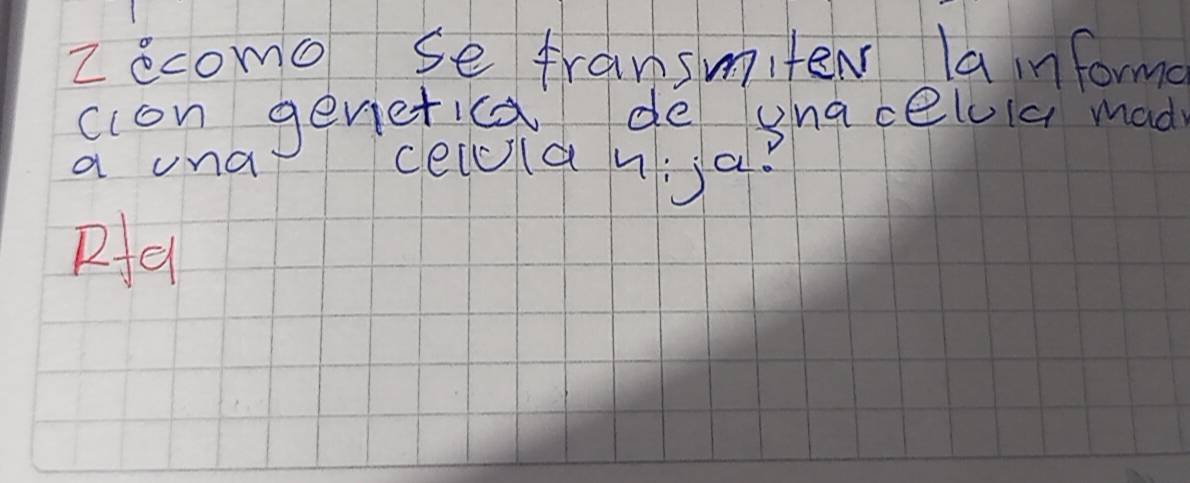 2 ¿como se transmiten la informa
cion genetica de una celula madr
a una celula hija?
Rta